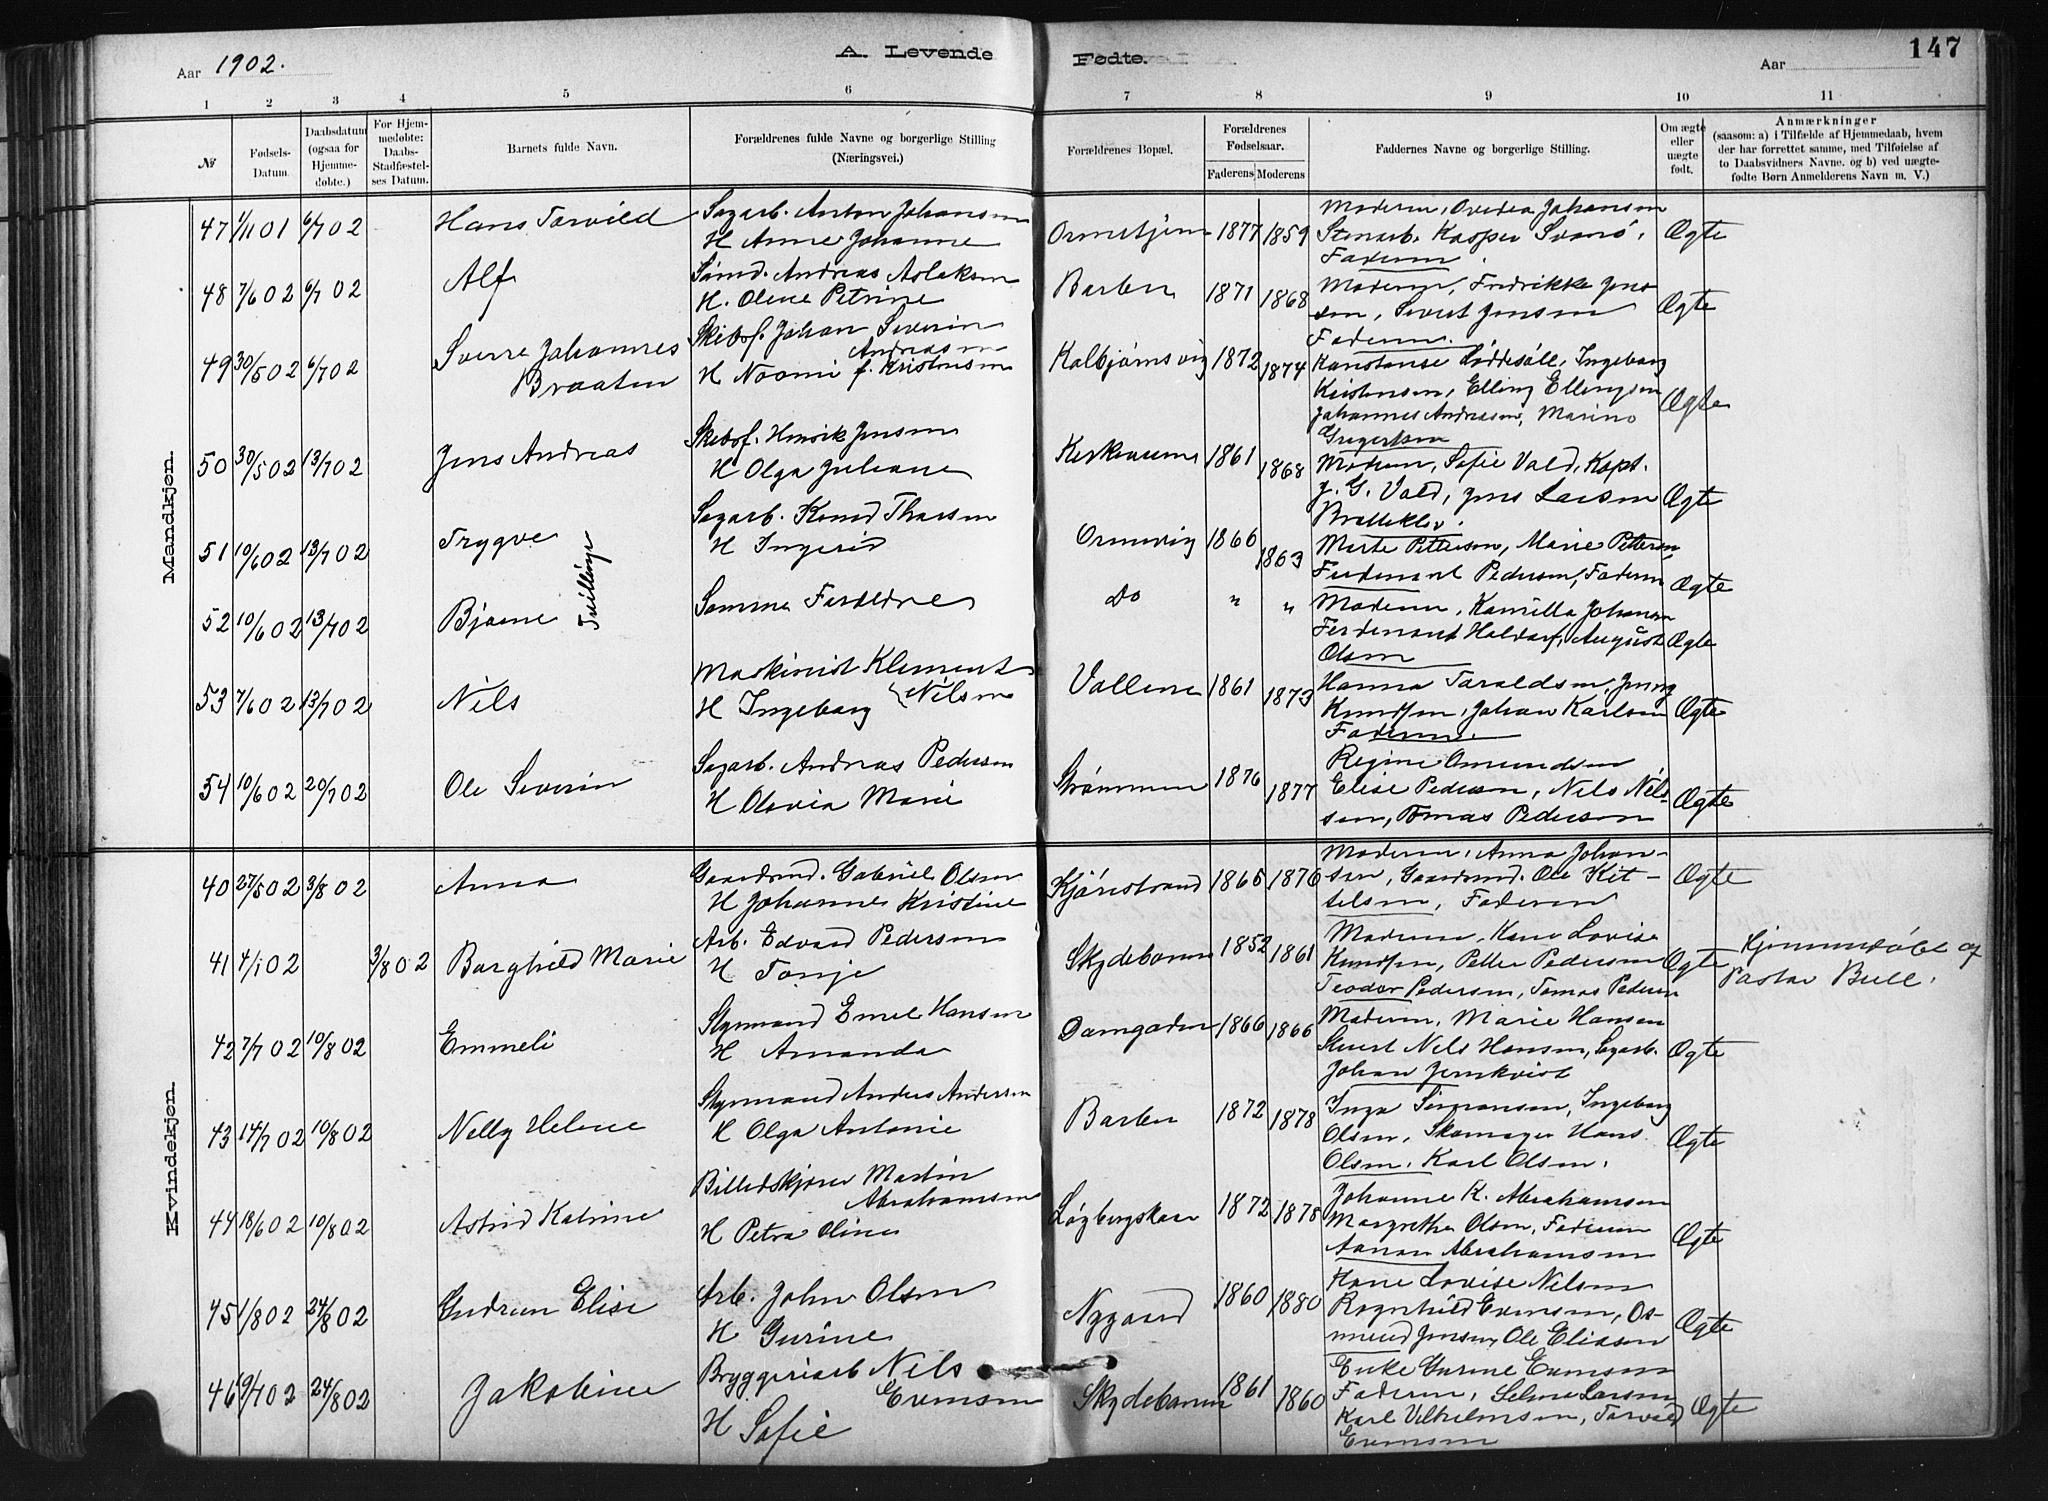 Aar 1902. A. Levende Fødte. Aar 147
1 2 3 4 5 6 7 8 9 10 11
№
Fødsels-Datum.
Daabsdatum (ogsaa for Hjemme-døbte.)
For Hjem-medøbte: Daabs-Stadfæstel-ses Datum.
Barnets fulde Navn.
Forældrenes fulde Navne og borgerlige Stilling (Næringsvei.)
Forældrenes Bopæl.
Forældrenes Fødselsaar.
Faderens Moderens
Faddernes Navne og borgerlige Stilling.
Om ægte eller uægte født.
Anmærkninger
(saasom: a) i Tilfælde af Hjemmedaab, hvem
der har forrettet samme, med Tilføielse af
to Daabsvidners Navne. og b) ved uægte-
fødte Børn Anmelderens Navn m. V.)
Mandkjøn.
47 1/11 01 6/7 02 Hans Torvild Sagarb. Anton Johansen
H Anne Johanne 1877 1859 Ægte
Moderen, Ovedia Johansen
Stenarb. Kasper Svanø,
Faderen.
48 7/6 02 6/7 02 Alf Sømd. Andreas Aslaksen
H. Olene Petrine Barbu 1871 1868 Ægte
Moderen, Fredrikke Jens
sen, Sivert Jensen
Faderen.
49 30/5 02 6/7 02 Sverre Johannes
Braaten
Skibsf. Johan Severin
Andreasen
H Noomi f. Kristensen Kolbjørnsvig 1872 1874 Ægte
Konstanse Løddesøll, Ingeborg
Kristensen, Elling Ellingsen
Johannes Andreasen, Marino
Gregersen
50 30/5 02 13/7 02 Jens Andreas Skibsf. Henrik Jensen
H Olga Juliane 1861 1868 Ægte
Moderen, Sofie Vold, Kapt.
J. G. Vold, Jens Larsen
Bratteklev.
51 10/6 02 13/7 02 Trygve Sagarb. Knud Thorsen
H Ingerid 1866 1863 Ægte
Merte Pettersen, Marie Pettersen,
Ferdenant Pedersen, Faderen
Tvillinge
52 10/6 02 13/7 02 Bjarne Samme Forældre Do " " Ægte
Moderen, Kamilla Johansen
Ferdenant Haldorf, August
Olsen
53 7/6 02 13/7 02 Nils Maskinist Klement
Nilsen
H Ingeborg Vollene 1861 1873 Ægte
Hanna Taraldsen, Jenny
Knudsen, Johan Karlsen
Faderen.
54 10/6 02 20/7 02 Ole Severin Sagarb. Andreas Pedersen
H Olavia Marie Strømmen 1876 1877 Ægte
Regine Omundsen
Elise Pedersen, Nils Nils-
sen, Tomas Pedersen
Kvindekjøn.
40 27/5 02 3/8 02 Anna Gaardmd. Gabriel Olsen
H Johanne Kristine Kjønstrand 1865 1876 Ægte
Moderen, Anna Johan-
sen, Gaardmd. Ole Kit-
telsen, Faderen
41 4/1 02 3/8 02 Borghild Marie Arb. Edvard Pedersen
H Tonje Skydebanen 1852 1861 Ægte
Moderen, Kare Lovise
Knudsen, Petter Pedersen
Teodor Pedersen, Tomas Pedersen
Hjemmedøbt af
Pastor Bull.
42 7/7 02 10/8 02 Emmeli Styrmand Emel Hansen
H Amanda Damgaden 1866 1866 Ægte
Moderen, Marie Hansen
Stuert Nils Hansen, Sagarb.
Johan Jernkvist
43 14/7 02 10/8 02 Nelly Helene Styrmand Anders Andersen
H Olga Antonie Barbu 1872 1878 Ægte
Inga Simonsen, Ingeborg
Olsen, Skomager Hans
Olsen, Karl Olsen.
44 18/6 02 10/8 02 Astrid Katrine Billedskjærer Martin
Abrahamsen
H Petra Oline 1872 1878 Ægte
Johanne K. Abrahamsen
Margrethe Olsen, Faderen
Aanon Abrahamsen
45 1/8 02 24/8 02 Gudrun Elise Arb. John Olsen
H Gurine Nygaard 1860 1880 Ægte
Hane Lovise Nilsen
Ragnhild Evensen, Os-
mund Jensen, Ole Eliasen
46 9/7 02 24/8 02 Jakobine Bryggeriarb Nils
Evensen
H Sofie Skydebanen 1861 1860 Ægte
Enke Gurine Evensen
Faderen, Selma Larsen
Karl Vilhelmsen, Torvald
Evensen